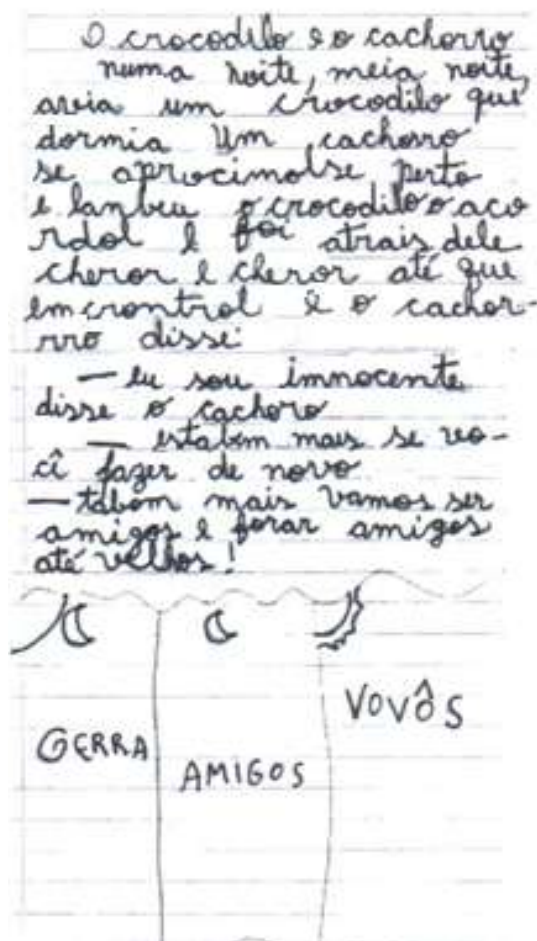 O crocodilo e o cachorro
numa noite, meia noite,
avia um crocodilo que
dormia Um cachorro
se aprocimolse perto
e lanbeu o crocodilo o aco
rdol e foi atrais dele
cheror e cheror até que
emcrontrol e o cachor-
rro disse:
— eu sou imnocente
disse o cachoro
— estabom mais se vo-
cî fazer de novo
— tabom mais vamos ser
amigos e forar amigos
até velhos!
GERRA
AMIGOS
VOVÔS